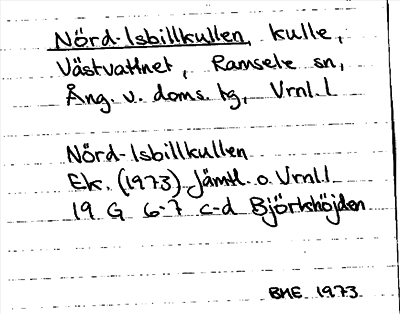 Nörd-Isbillkullen, kulle,
Västvattnet, Ramsele sn,
Ång. v. doms. tg, Vrnl. l
Nörd-Isbillkullen
Ek. (1973) Jämtl. o. Vrnl. l
19 G 6-7 c-d Björkhöjden
BHE 1973